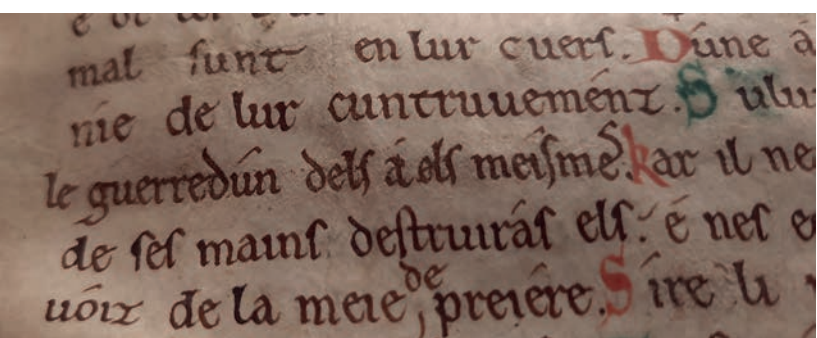 mal ſunt en lur cuerſ. Dúne á
nie de lur cuntruuemént. Sulu
le guerredún delſ á elſ meiſmeſ. kar il ne
de ſeſ mainſ deſtruiráſ elſ: é neſ e
uóiz de la meie de preiére. Sire li